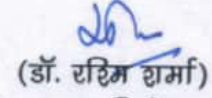 (डॉ. रश्मि शर्मा)